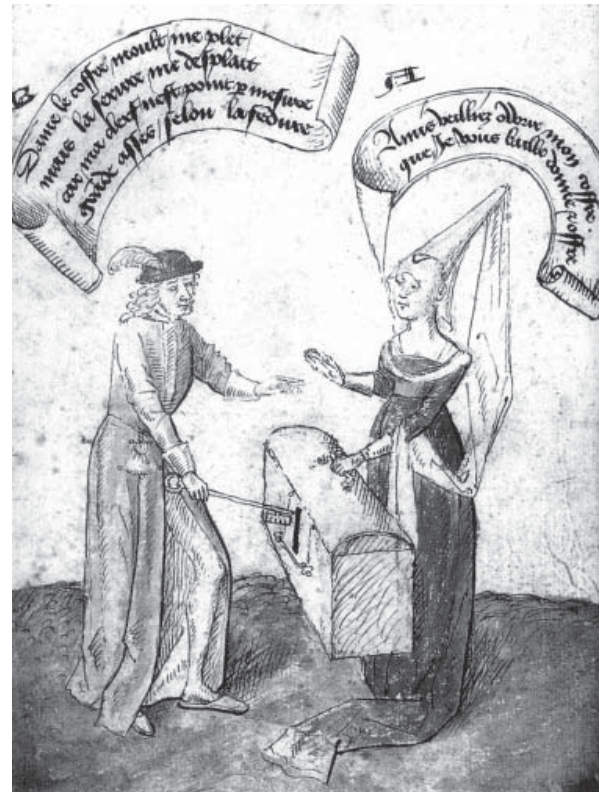 B
Dame le coffre moult me plet
mais la serure me desplait
car ma clef nest point p mesure
grande asses / selon la sedure
A
Amis veilliez ovrir mon coffre
que Je vous baille donne et offre